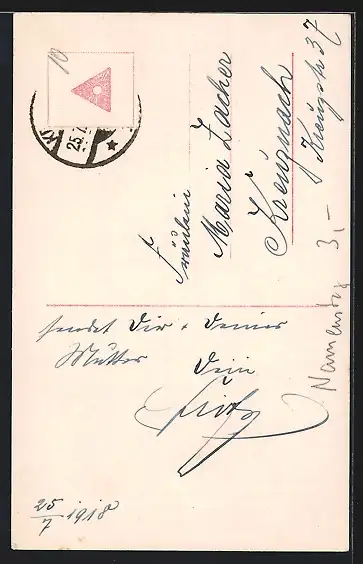 10
25.7
Fräulein
Maria Zacher
Kreuznach
Kreuzstr 37
Namenstag 3,-
sendet Dir & Deiner
Mutter Dein
Fritz
25/7 1918